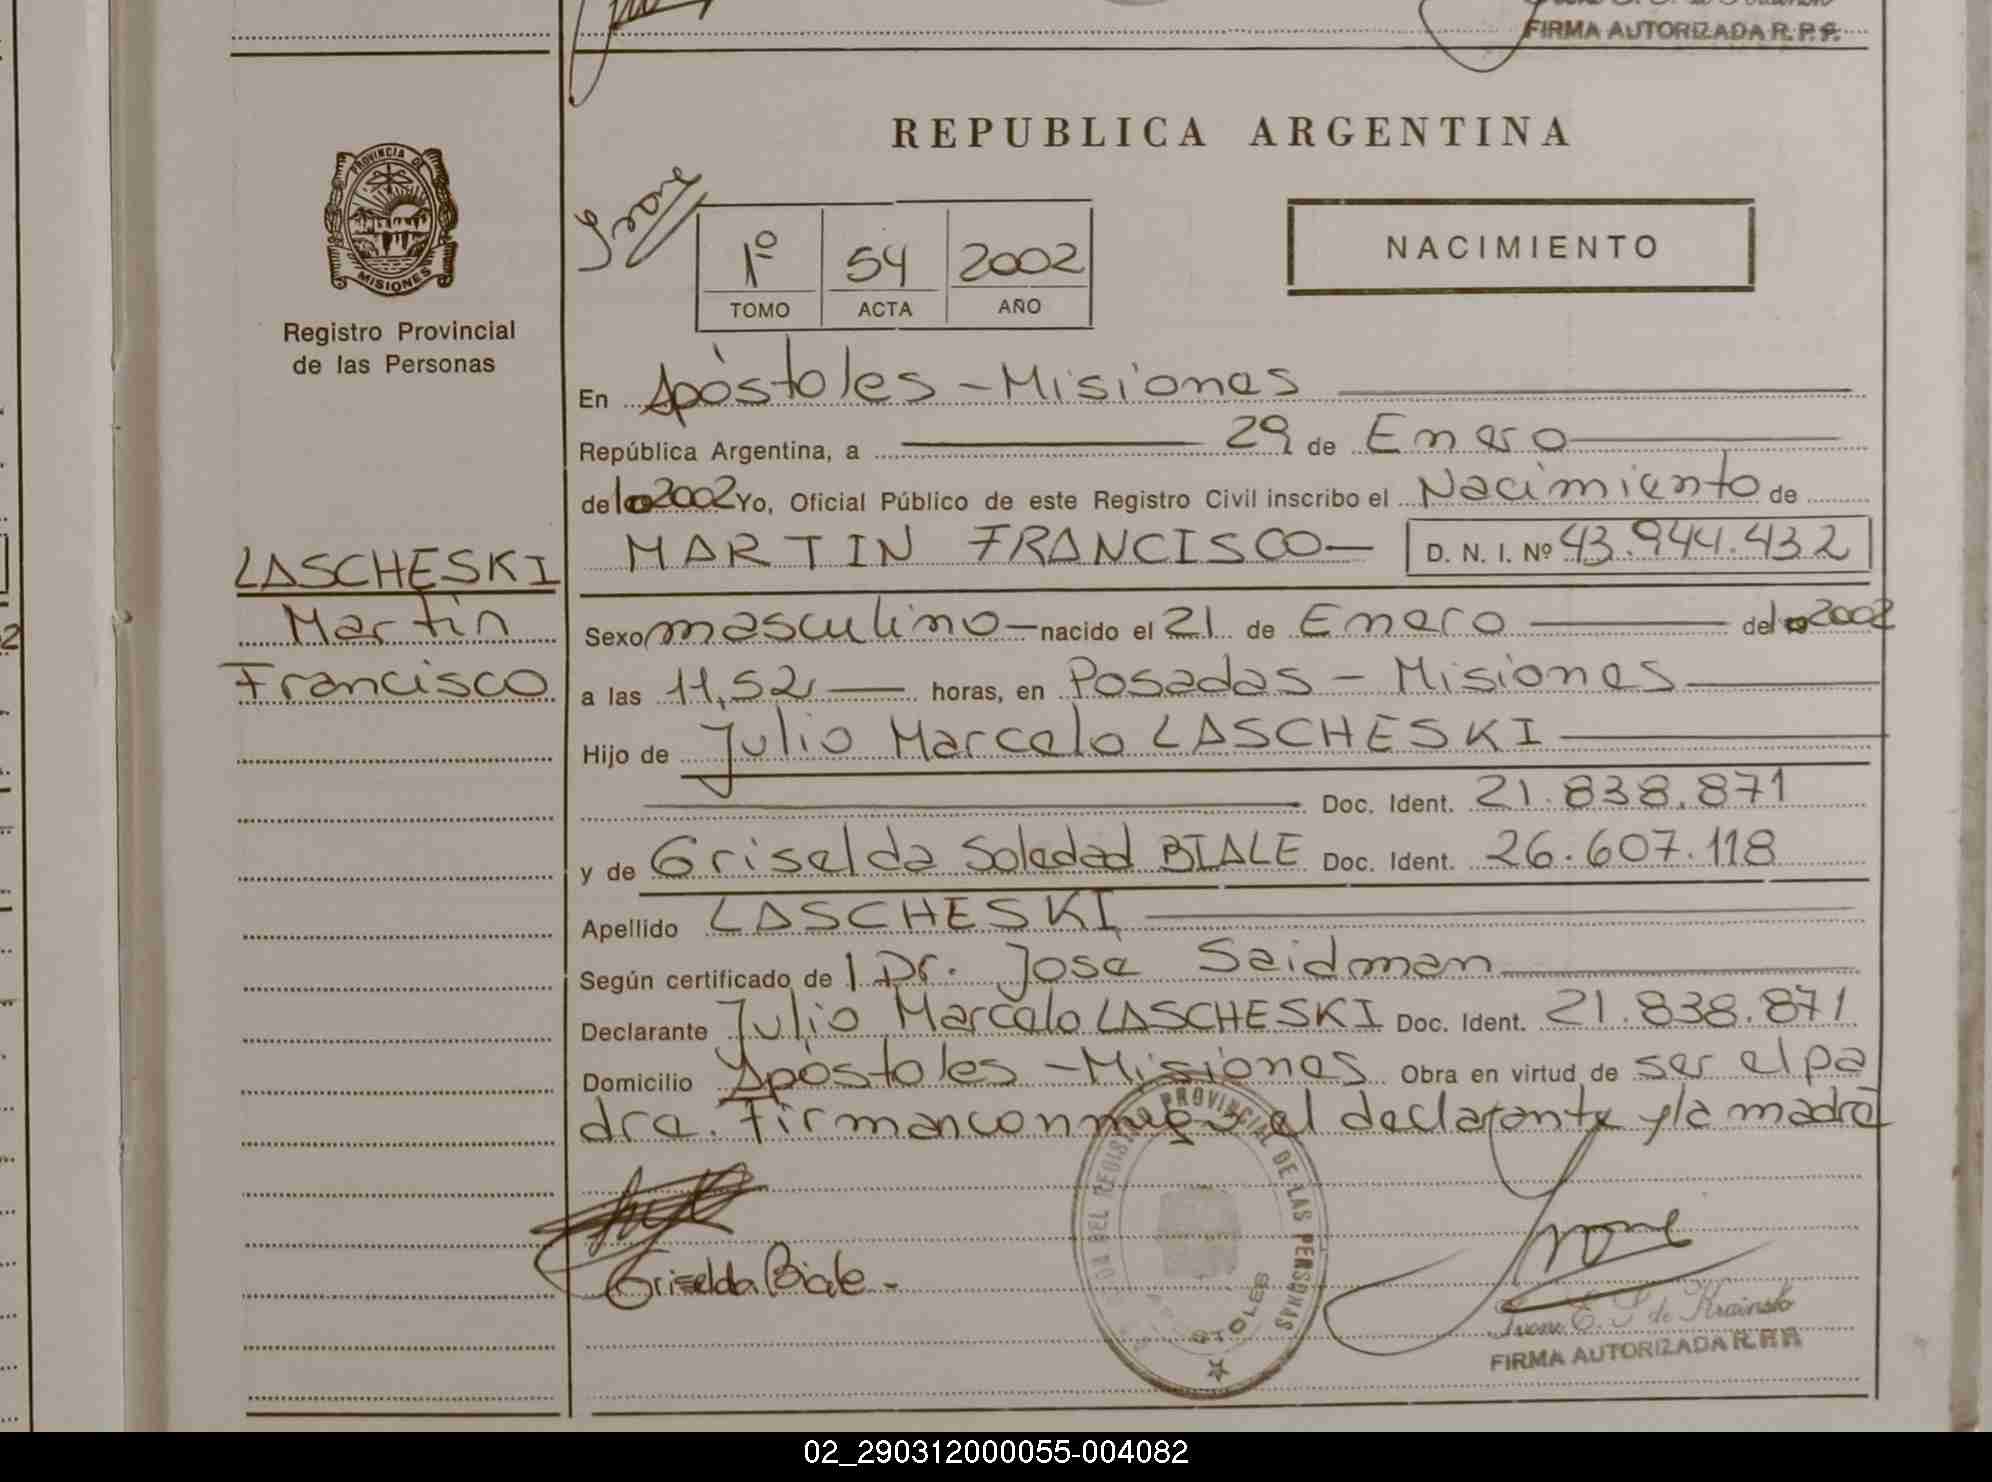 FIRMA AUTORIZADA R. P. P.
REPUBLICA ARGENTINA
PROVINCIA DE
MISIONES
Registro Provincial
de las Personas
1º 54 2002
TOMO ACTA AÑO
NACIMIENTO
En Apóstoles - Misiones
República Argentina, a 29 de Enero
del 2002 Yo, Oficial Público de este Registro Civil inscribo el Nacimiento de
MARTIN FRANCISCO D. N. I. Nº 43.944.432
LASCHESKI
Martín
Francisco
Sexo masculino nacido el 21 de Enero del 2002
a las 11,52 horas, en Posadas - Misiones
Hijo de Julio Marcelo LASCHESKI
Doc. Ident. 21.838.871
y de Griselda Soledad BIALE Doc. Ident. 26.607.118
Apellido LASCHESKI
Según certificado del Dr. Jose Saidman
Declarante Julio Marcelo LASCHESKI Doc. Ident. 21.838.871
Domicilio Apóstoles - Misiones Obra en virtud de ser el pa
dre. Firman conmigo el declarante y la madre
DEL REGISTRO PROVINCIAL DE LAS PERSONAS
Griselda Biale.-
Ivone
Ivone E. S. de Krainski
FIRMA AUTORIZADA R. P. P.
02_290312000055-004082